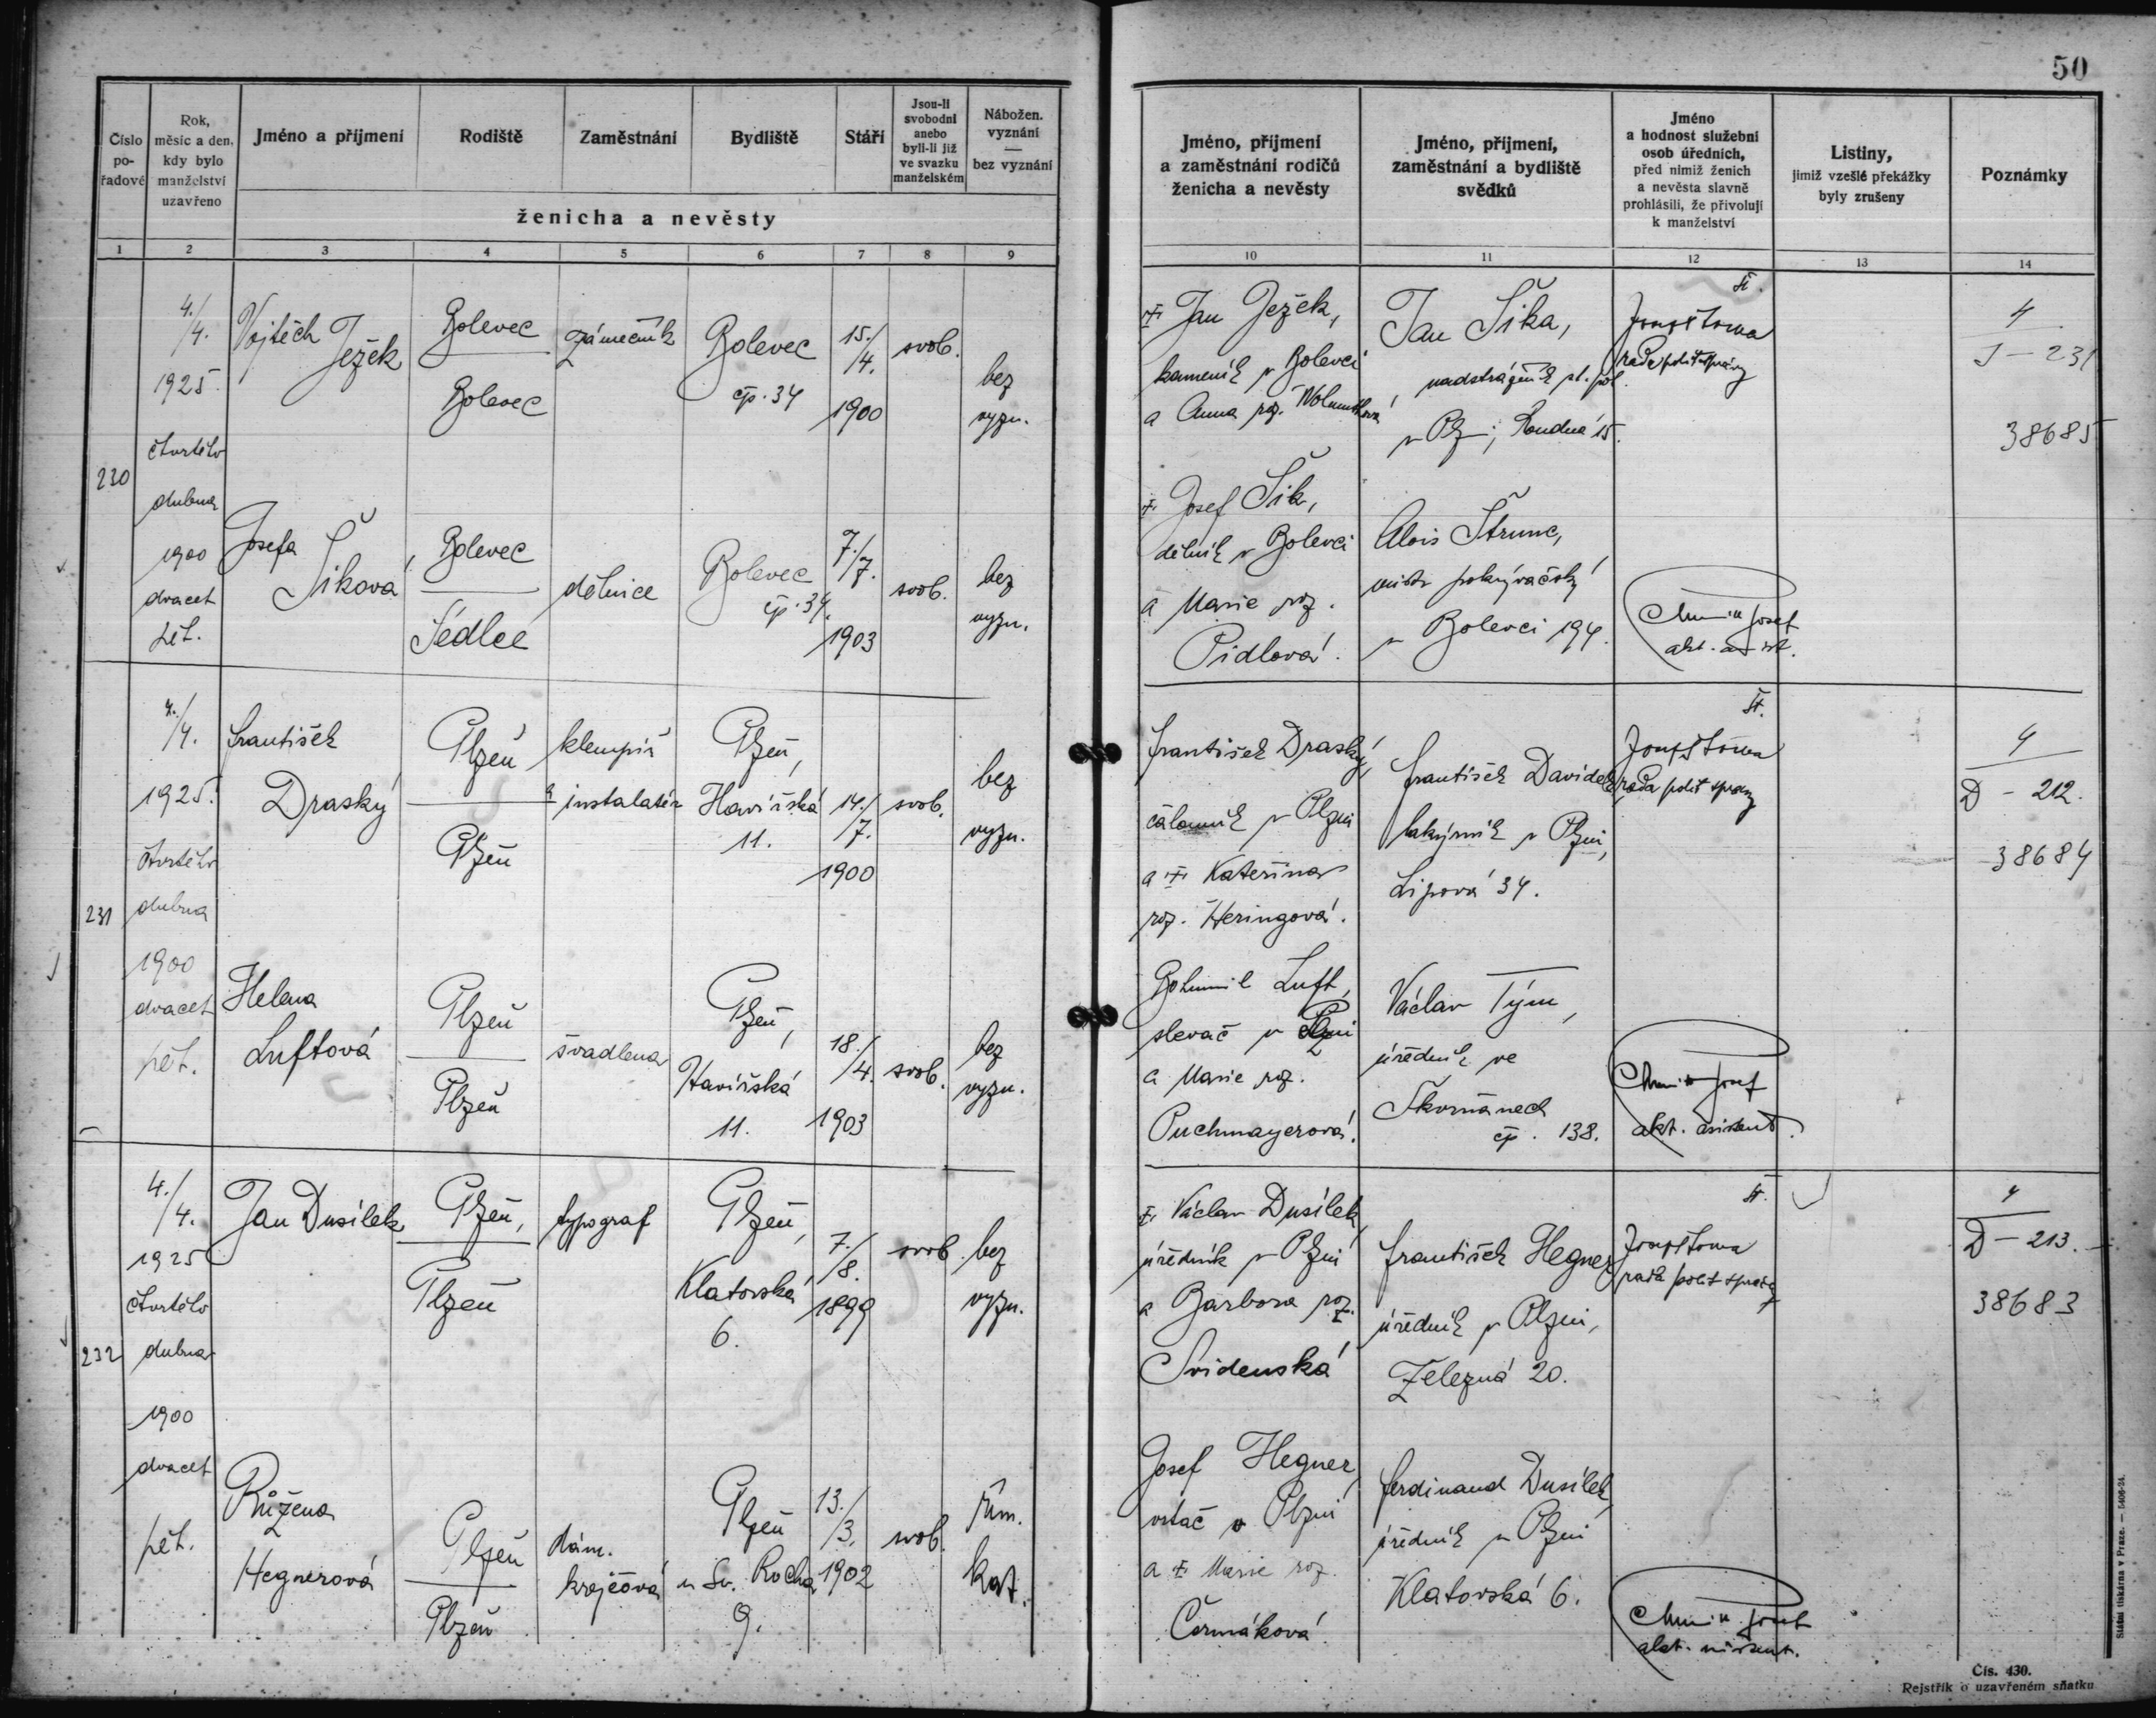 50
Číslo
po-
řadové
Rok,
měsíc a den,
kdy bylo
manželství
uzavřeno
Jméno a příjmení
Rodiště
Zaměstnání
Bydliště
Stáří
Jsou-li
svobodni
anebo
byli-li již
ve svazku
manželském
Nábožen.
vyznání
—
bez vyznání
ženicha a nevěsty
Jméno, příjmení
a zaměstnání rodičů
ženicha a nevěsty
Jméno, příjmení,
zaměstnání a bydliště
svědků
Jméno
a hodnost služební
osob úředních,
před nimiž ženich
a nevěsta slavně
prohlásili, že přivolují
k manželství
Listiny,
jimiž vzešlé překážky
byly zrušeny
Poznámky
1 2 3 4 5 6 7 8 9 10 11 12 13 14
230
4./4.
1925.
čtvrtého
dubna
1900
dvacet
pět.
Vojtěch
Ježek
Bolevec
Bolevec
zámečník
Bolevec
čp. 34
15./4.
1900
svob.
bez
vyzn.
Josefa
Šiková
Bolevec
Sedlec
dělnice
Bolevec
čp. 34.
7./7.
1903
svob.
bez
vyzn.
Jan Ježek,
kameník v Bolevci
a Anna roz.
Josef Šik,
dělník v Bolevci
a Marie roz.
Pidlová.
Jan Šika,
nadstrážník st. pol.
v Plzni, Roudná 15.
Alois Štrunc,
mistr pokrývačský
v Bolevci 194.
rada polit. správy
Josef
akt.
4
J - 231
38685
231
4./4.
1925.
čtvrtého
dubna
1900
dvacet
pět.
František
Draský
Plzeň
Plzeň
klempíř
a instalatér
Plzeň,
Havířská
11.
14./7.
1900
svob.
bez
vyzn.
Helena
Luftová
Plzeň
Plzeň
švadlena
Plzeň,
Havířská
11.
18./4.
1903
svob.
bez
vyzn.
František Draský,
čalouník v Plzni
a Kateřina
roz. Heringová.
Bohumil Luft,
slevač v Plzni
a Marie roz.
Puchmayerová.
František Davídek
lakýrník v Plzni,
Lipová 34.
Václav Tým,
úředník ve
Škvrňanech
čp. 138.
rada polit. správy
Josef
akt. asistent.
4
D - 212.
38684
232
4./4.
1925
čtvrtého
dubna
1900
dvacet
pět.
Jan Dusílek
Plzeň,
Plzeň
typograf
Plzeň,
Klatovská
6.
7./8.
1899
svob.
bez
vyzn.
Růžena
Hegnerová
Plzeň
Plzeň
dám.
krejčová
Plzeň
u Sv. Rocha
9.
13./3.
1902
svob.
řím.
kat.
Václav Dusílek,
úředník v Plzni
a Barbora roz.
Svidenská
Josef Hegner,
vrtač v Plzni
a Marie roz.
Čermáková.
František Hegner
úředník v Plzni,
Železná 20.
Ferdinand Dusílek,
úředník v Plzni
Klatovská 6.
rada polit. správy
Josef
akt. asistent.
4
D - 213.
38683
Státní tiskárna v Praze. — 5406-24.
Čís. 430.
Rejstřík o uzavřeném sňatku